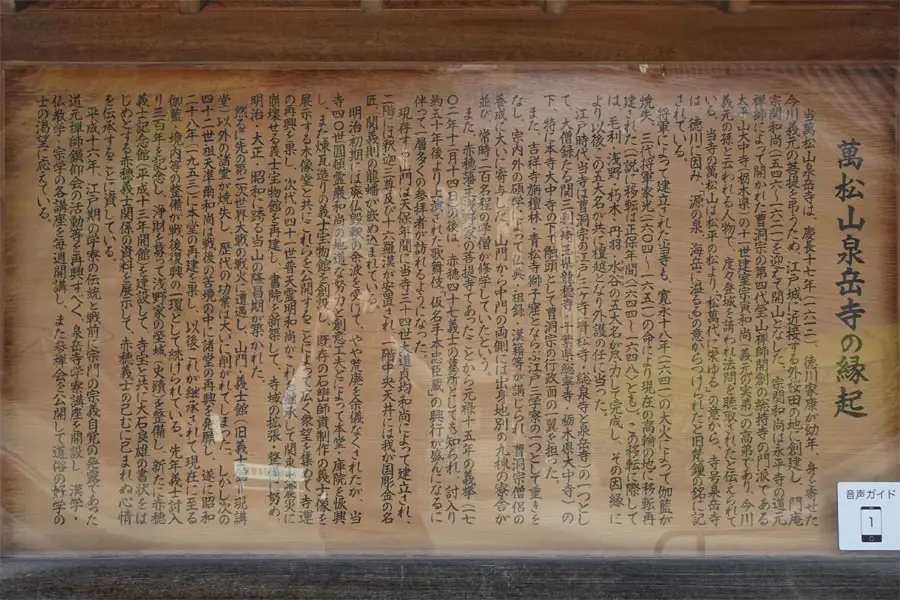 萬松山泉岳寺の縁起
当萬松山泉岳寺は、慶長十七年(一六一二)、徳川家康が幼年、身を寄せた
今川義元の菩提を弔うため、江戸城に近接する外桜田の地に創建し、門庵
宗関和尚(一五四六〜一六二一)を迎えて開山となした。宗関和尚は永平寺の道元
禅師によって開かれた曹洞宗の第四代瑩山禅師開創の總持寺の門派である
太平山大中寺(栃木県)の十一世建室宗寅和尚(義元の実弟)の高弟であり、今川
義元の孫とも云われる人物で、度々登城を請われ仏法問を聴取されたと伝えられて
いる。当寺の萬松山は松平の松より、「松萬代に栄ゆる」の意から、寺号泉岳寺
は、徳川に因み、「源の泉、海岳に溢るる」の意からつけられたと旧梵鐘の銘に記
されている。
将軍家によって建立された当寺も、寛永十八年(一六四一)の大火によって伽藍が
焼失、三代将軍家光(一六〇四〜一六五一)の命により現在の高輪の地に移転再
建された(一説に移転は正保年間(一六四四〜一六四八)とも)。この移転に際して
は、毛利・浅野・朽木・丹羽・水谷の五大名が尽力して完成し、その因縁に
より以後、この五大名が共に檀越となり外護の任に当った。
江戸時代当寺は曹洞宗の江戸三ヶ寺(青松寺・総泉寺と泉岳寺)の一つとし
て、大僧録たる関三刹(埼玉県龍穏寺・千葉県総寧寺・栃木県大中寺)の
下、特に本寺大中寺の下で触頭として曹洞宗の行政面の一翼を担った。
また、吉祥寺旃檀林、青松寺獅子窟とならぶ江戸三学寮の一つとして重きを
なし、宗内外の碩学によって仏典・祖録・漢籍等が講じられ、曹洞宗僧侶の
養成に大いに寄与した。山門から中門の両側には出身地別の九棟の寮舎が
並び、常時二百名程の学僧が修学していたという。
また、赤穂藩主浅野家の菩提寺であったことから元禄十五年の義挙(一七
〇二年十二月十四日)の後は、赤穂四十七義士の墓所としても知られ、討入り
約五十年後より上演された歌舞伎、「仮名手本忠臣蔵」の興行が盛んになるに
伴って一層多くの参拝者が訪れるようになった。
現存する山門は天保年間に当寺三十四世大道貞均和尚によって建立され、
二階には釈迦三尊及び十六羅漢が安置され、一階中央天井には我が国彫金の名
匠、関義則の龍蟠が嵌め込まれている。
明治初期には廃仏毀釈の余波を受けて、やや荒廃を余儀なくされたが、当
寺四〇世圓朝霊嶽和尚の地道な努力と創意工夫とによって本堂・庫院を恢興
し、また煉瓦造りの義士宝物館を創設し、既存の石版師資制作の義士像を
展示する木像堂と共に、これらを公開することによって広く衆望を集めて寺運
の再興を果し、次代の四十一世普天霊明和尚がこれを継承して関東大震災に
崩壊せる義士宝物館を再建し、書院を新築して、寺域の拡張・整備に努め、
明治・大正・昭和に跨る当山の隆昌期が築かれた。
然るに先の第二次世界大戦の戦火に遭遇し、山門・義士館(旧義士館)・現講
堂)以外の諸堂が焼失し、歴代の功業は大いに削がれてしまった。しかし次の
四十二世祖天準爾和尚は戦後の古境の中に諸堂の再興を発願し、遂に昭和
二十八年(一九五三)に本堂の再建を果し、以後、これが継承されて現在に至る
伽藍・境内等の整備が戦後復興の一環として続けられている。先年義士討入
り三百年を記念し、浄財を募って浅野家の塋域(史蹟)を整備し、新たに赤穂
義士記念館(平成十三年開館)を建設して、寺宝と共に大石良雄の書状をは
じめとする赤穂義士関係の資料を展示して、赤穂義士の己むに已まれぬ心情
を伝承することに資している。
平成十六年、江戸期の学寮の伝統と戦前に宗門の宗義自覚の発露であった
道元禅師鑽仰会の活動等を再興すべく、泉岳寺学寮講座を開設し、漢学・
仏教学・宗学の各講座を毎週開講し、また参禅会を公開して道俗の好学の
士の渇望に応えている。
音声ガイド
1